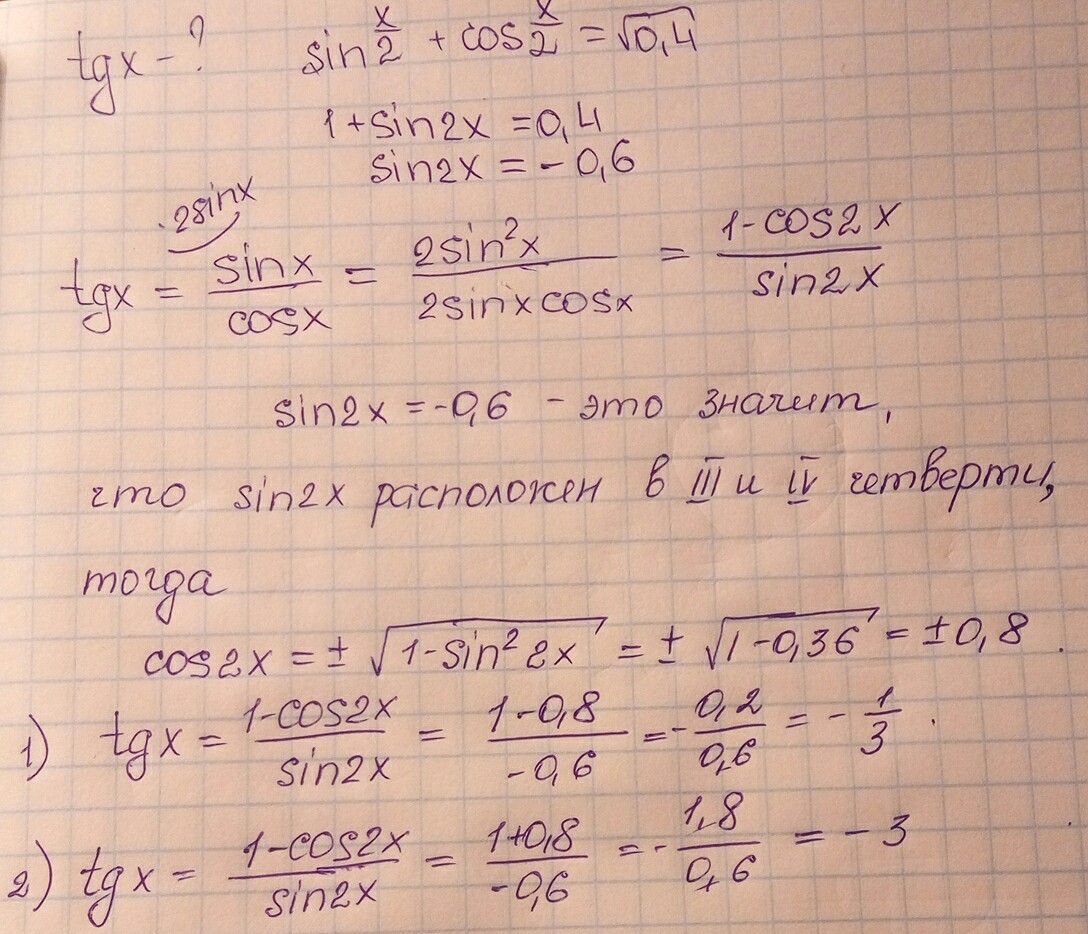 tgx - ? sin x/2 + cos x/2 = √0,4
1 + sin2x = 0,4
sin2x = - 0,6
·2sinx
tgx = sinx/cosx = 2sin²x/2sinxcosx = 1-cos2x/sin2x
sin2x = -0,6 - это значит,
что sin2x расположен в III и IV четверти,
тогда
cos2x = ± √1-sin²2x = ± √1-0,36 = ±0,8.
1) tgx = 1-cos2x/sin2x = 1-0,8/-0,6 = -0,2/0,6 = - 1/3.
2) tgx = 1-cos2x/sin2x = 1+0,8/-0,6 = -1,8/0,6 = - 3